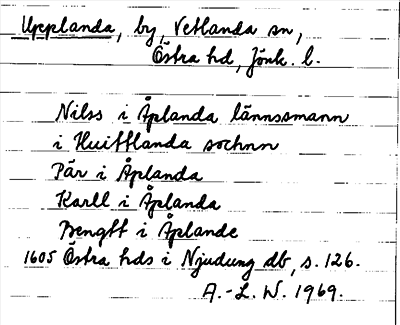 Upplanda, by, Vetlanda sn,
Östra hd, Jönk. l.
Nilss i Åplanda lännssmann
i Huittlanda sochnn
Pär i Åplanda
Karll i Åplanda
Bengtt i Åplande
1605 Östra hds i Njudung db, s. 126.
A.-L. W. 1969.